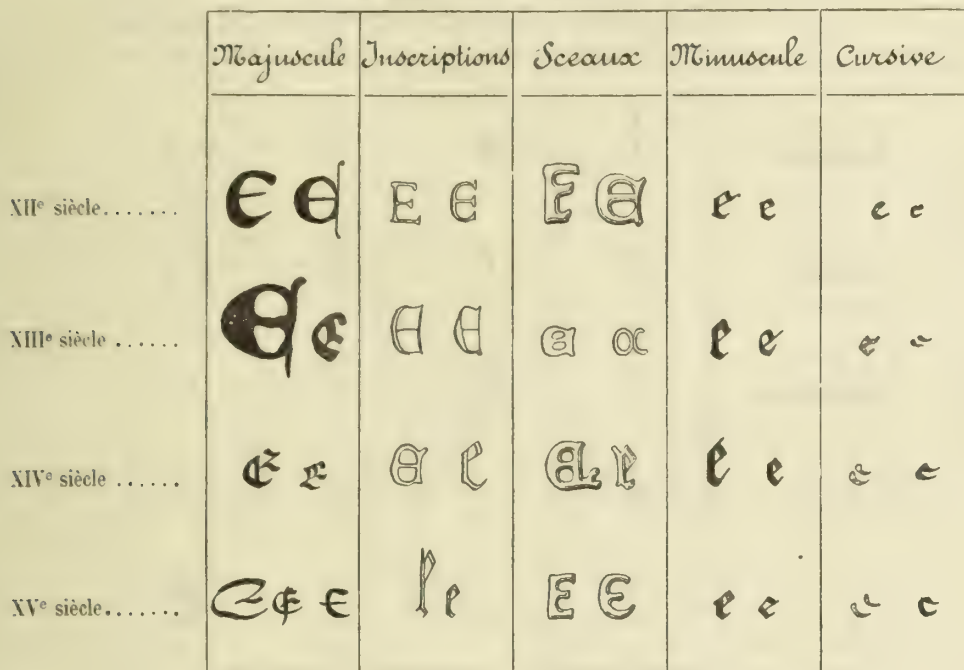 Majuscule Inscriptions Sceaux Minuscule Cursive
XIIe siècle....... E E E E E E e e e e
XIIIe siècle ...... E E E E E E e e e e
XIVe siècle ...... E E E e E e e e e e
XVe siècle....... E E E e e E E e e e e